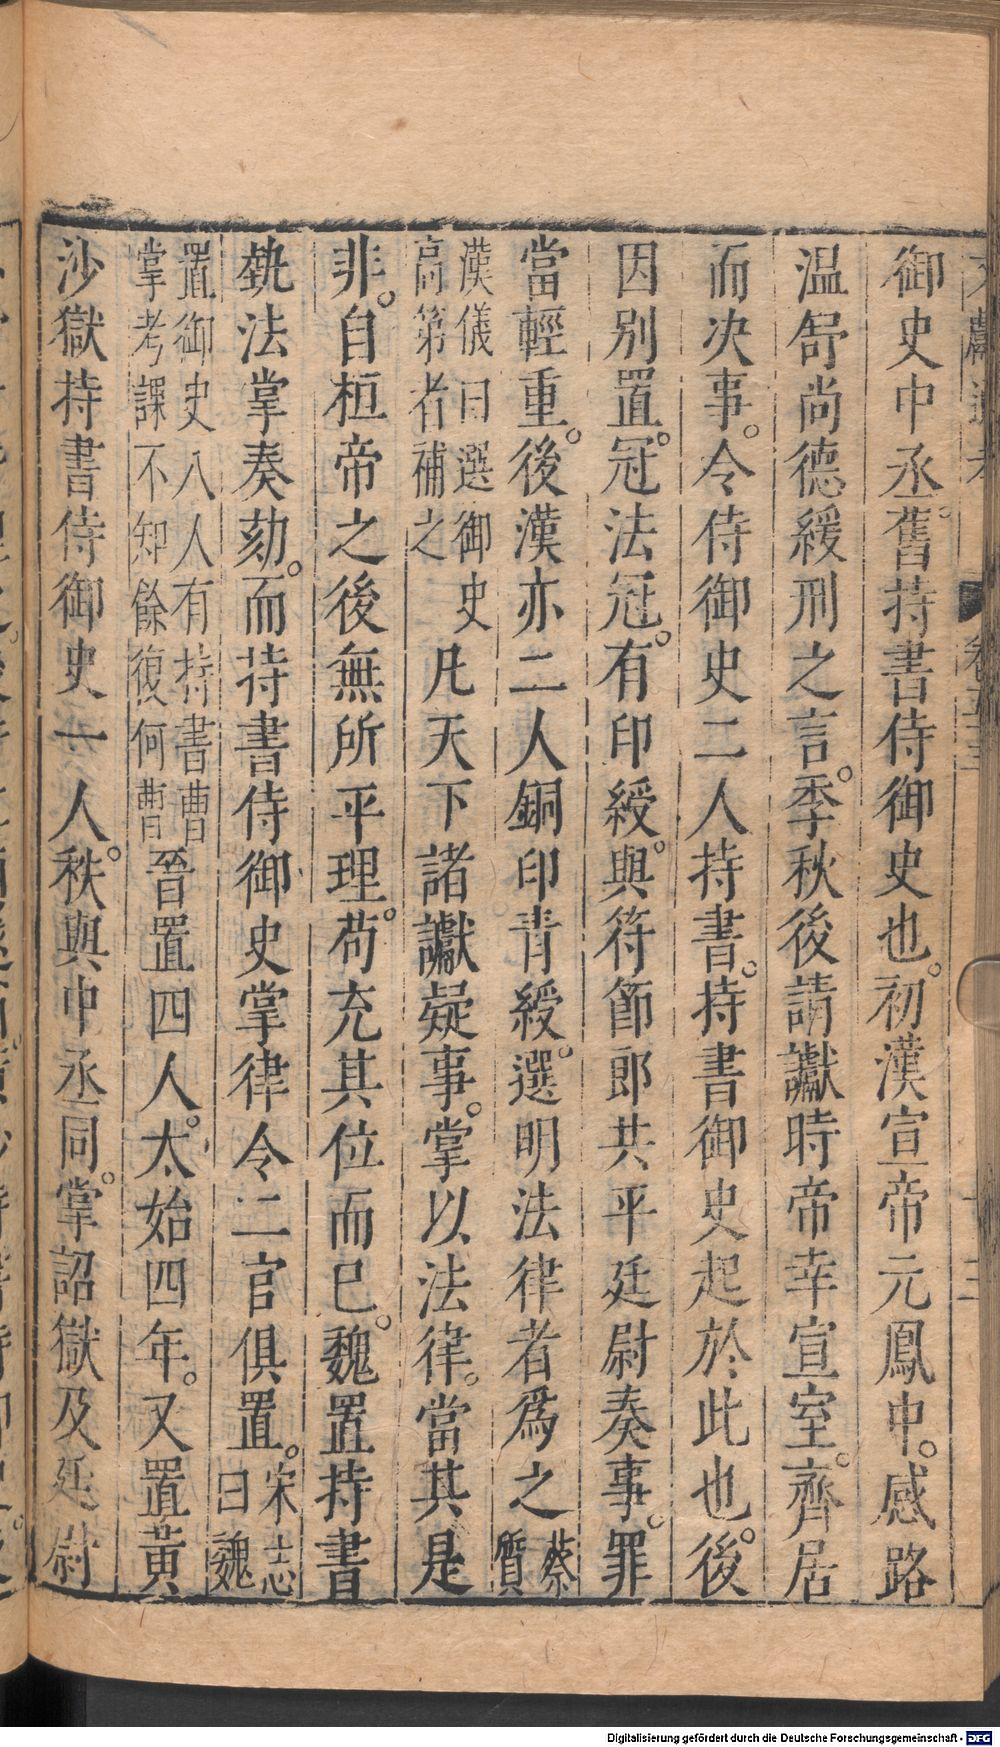 御史中丞。舊持書侍御史也。初漢宣帝元鳳中。感路
温舒尚德緩刑之言。季秋後請讞時帝幸宣室。齊居
而决事。令侍御史二人持書。持書御史起於此也。後
因别置。冠法冠。有印綬。與符節郎共平廷尉奏事。罪
當輕重。後漢亦二人銅印青綬。選明法律者爲之 蔡質
漢儀曰選御史高第者補之 凡天下諸讞疑事。掌以法律。當其是
非。自桓帝之後無所平理。苟充其位而已。魏置持書
執法掌奏劾。而持書侍御史掌律令二官俱置。 宋志曰魏
置御史八人有持書曹掌考課不知餘復何曹 晉置四人。太始四年。又置黃
沙獄持書侍御史一人。秩與中丞同。掌詔獄及廷尉
Digitalisierung gefördert durch die Deutsche Forschungsgemeinschaft - DFG